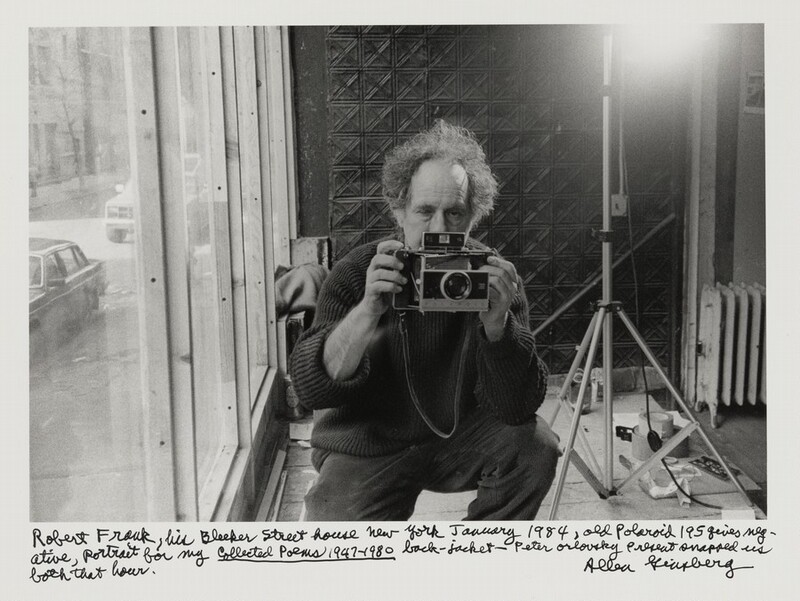 Robert Frank, his Bleeker Street house New York January 1984, old Polaroid 195 gives neg-
ative, portrait for my Collected Poems 1947-1980 back-jacket — Peter Orlovsky present snapped us
both that hour.
Allen Ginsberg